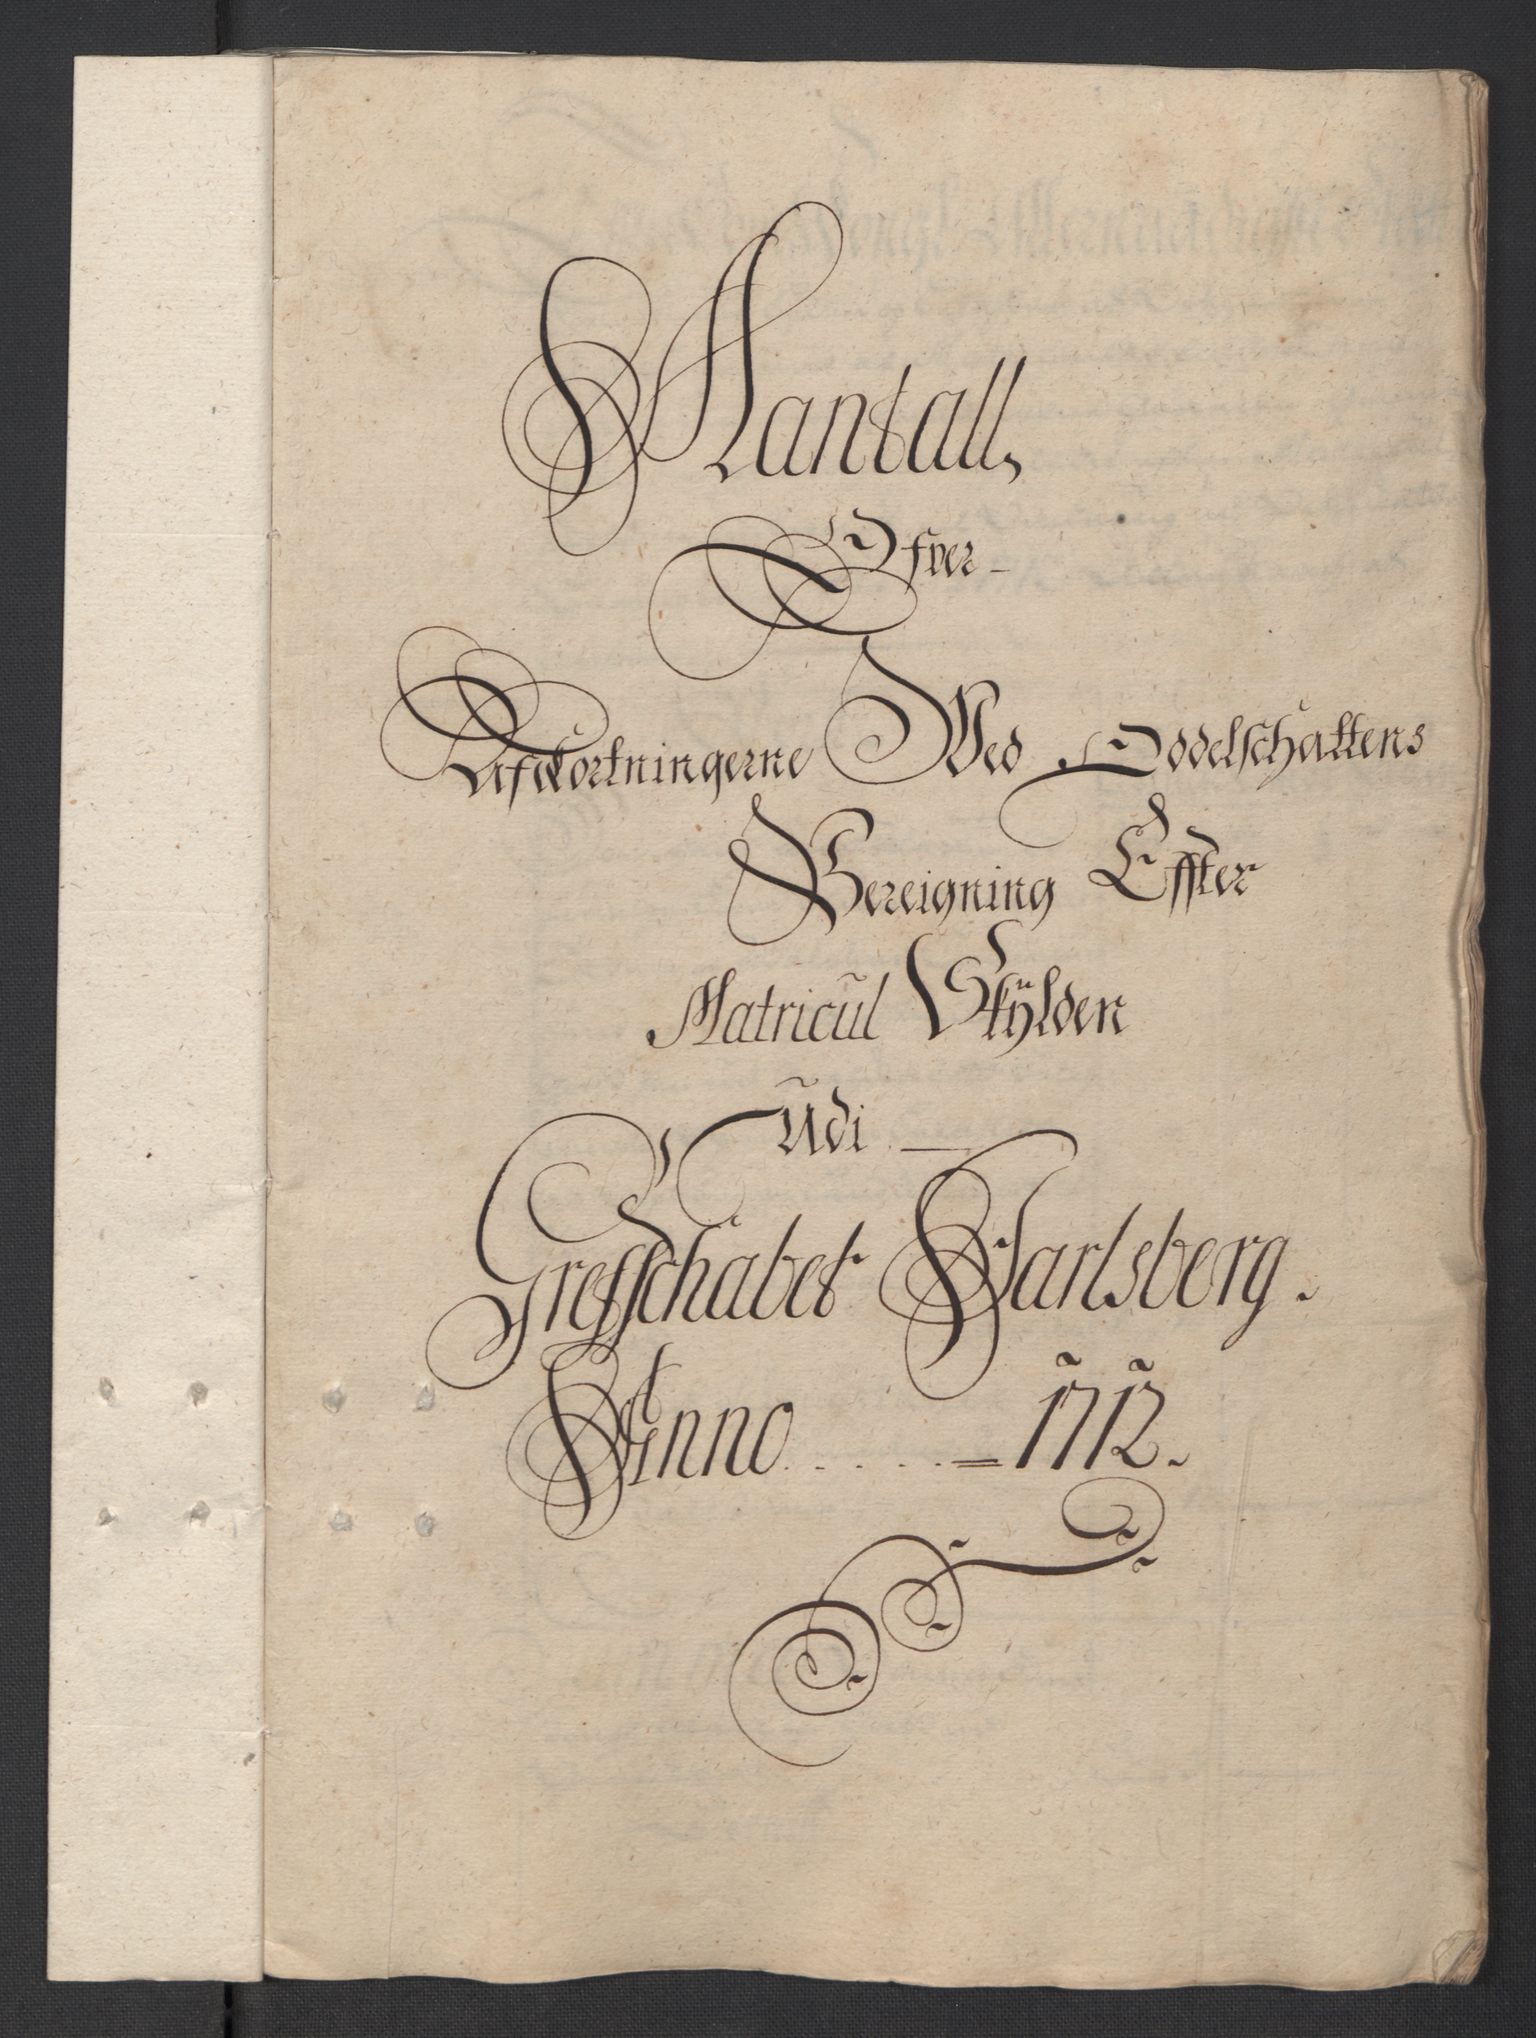 Mantall,
Ofver
Afkortningerne Ved Oddelschattens
Bereigning Effter
Matricul Skÿlden
Udi
Grefschabet Jarlsberg.
Anno 1712.